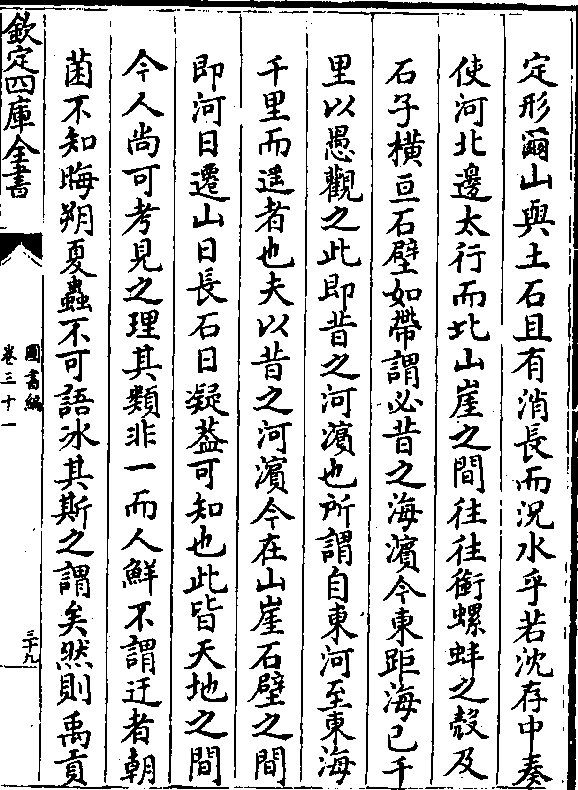 定形爾山與土石且有消長而況水乎若沈存中奏
使河北邊太行而北山崖之間往往銜螺蚌之殻及
石子橫亘石壁如帶謂必昔之海濱今東距海已千
里以愚觀之此即昔之河濱也所謂自東河至東海
千里而遥者也夫以昔之河濱今在山崖石壁之間
即河日遷山日長石日凝葢可知也此皆天地之間
今人尚可考見之理其類非一而人鮮不謂迂者朝
菌不知晦朔夏蟲不可語冰其斯之謂矣然則禹貢
欽定四庫全書
圖書編
卷三十一
三十九